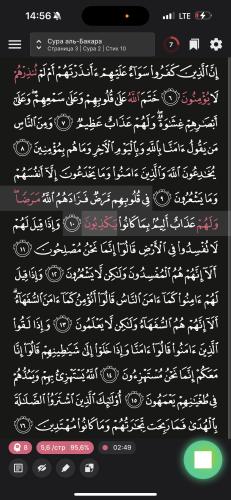 14:56
LTE
Сура аль-Бакара
Страница 3 | Сура 2 | Стих 10
7
إِنَّ ٱلَّذِينَ كَفَرُوا۟ سَوَآءٌ عَلَيْهِمْ ءَأَنذَرْتَهُمْ أَمْ لَمْ تُنذِرْهُمْ
لَا يُؤْمِنُونَ ٦ خَتَمَ ٱللَّهُ عَلَىٰ قُلُوبِهِمْ وَعَلَىٰ سَمْعِهِمْ وَعَلَىٰٓ
أَبْصَـٰرِهِمْ غِشَـٰوَةٌ وَلَهُمْ عَذَابٌ عَظِيمٌ ٧ وَمِنَ ٱلنَّاسِ
مَن يَقُولُ ءَامَنَّا بِٱللَّهِ وَبِٱلْيَوْمِ ٱلْـَٔاخِرِ وَمَا هُم بِمُؤْمِنِينَ ٨
يُخَـٰدِعُونَ ٱللَّهَ وَٱلَّذِينَ ءَامَنُوا۟ وَمَا يَخْدَعُونَ إِلَّآ أَنفُسَهُمْ
وَمَا يَشْعُرُونَ ٩ فِى قُلُوبِهِم مَّرَضٌ فَزَادَهُمُ ٱللَّهُ مَرَضًا
وَلَهُمْ عَذَابٌ أَلِيمٌۢ بِمَا كَانُوا۟ يَكْذِبُونَ ١٠ وَإِذَا قِيلَ لَهُمْ
لَا تُفْسِدُوا۟ فِى ٱلْأَرْضِ قَالُوٓا۟ إِنَّمَا نَحْنُ مُصْلِحُونَ ١١
أَلَآ إِنَّهُمْ هُمُ ٱلْمُفْسِدُونَ وَلَـٰكِن لَّا يَشْعُرُونَ ١٢ وَإِذَا قِيلَ
لَهُمْ ءَامِنُوا۟ كَمَآ ءَامَنَ ٱلنَّاسُ قَالُوٓا۟ أَنُؤْمِنُ كَمَآ ءَامَنَ ٱلسُّفَهَآءُ
أَلَآ إِنَّهُمْ هُمُ ٱلسُّفَهَآءُ وَلَـٰكِن لَّا يَعْلَمُونَ ١٣ وَإِذَا لَقُوا۟
ٱلَّذِينَ ءَامَنُوا۟ قَالُوٓا۟ ءَامَنَّا وَإِذَا خَلَوْا۟ إِلَىٰ شَيَـٰطِينِهِمْ قَالُوٓا۟ إِنَّا
مَعَكُمْ إِنَّمَا نَحْنُ مُسْتَهْزِءُونَ ١٤ ٱللَّهُ يَسْتَهْزِئُ بِهِمْ وَيَمُدُّهُمْ
فِى طُغْيَـٰنِهِمْ يَعْمَهُونَ ١٥ أُو۟لَـٰٓئِكَ ٱلَّذِينَ ٱشْتَرَوُا۟ ٱلضَّلَـٰلَةَ
بِٱلْهُدَىٰ فَمَا رَبِحَت تِّجَـٰرَتُهُمْ وَمَا كَانُوا۟ مُهْتَدِينَ ١٦
8
5,6 /стр 95,6%
02:49